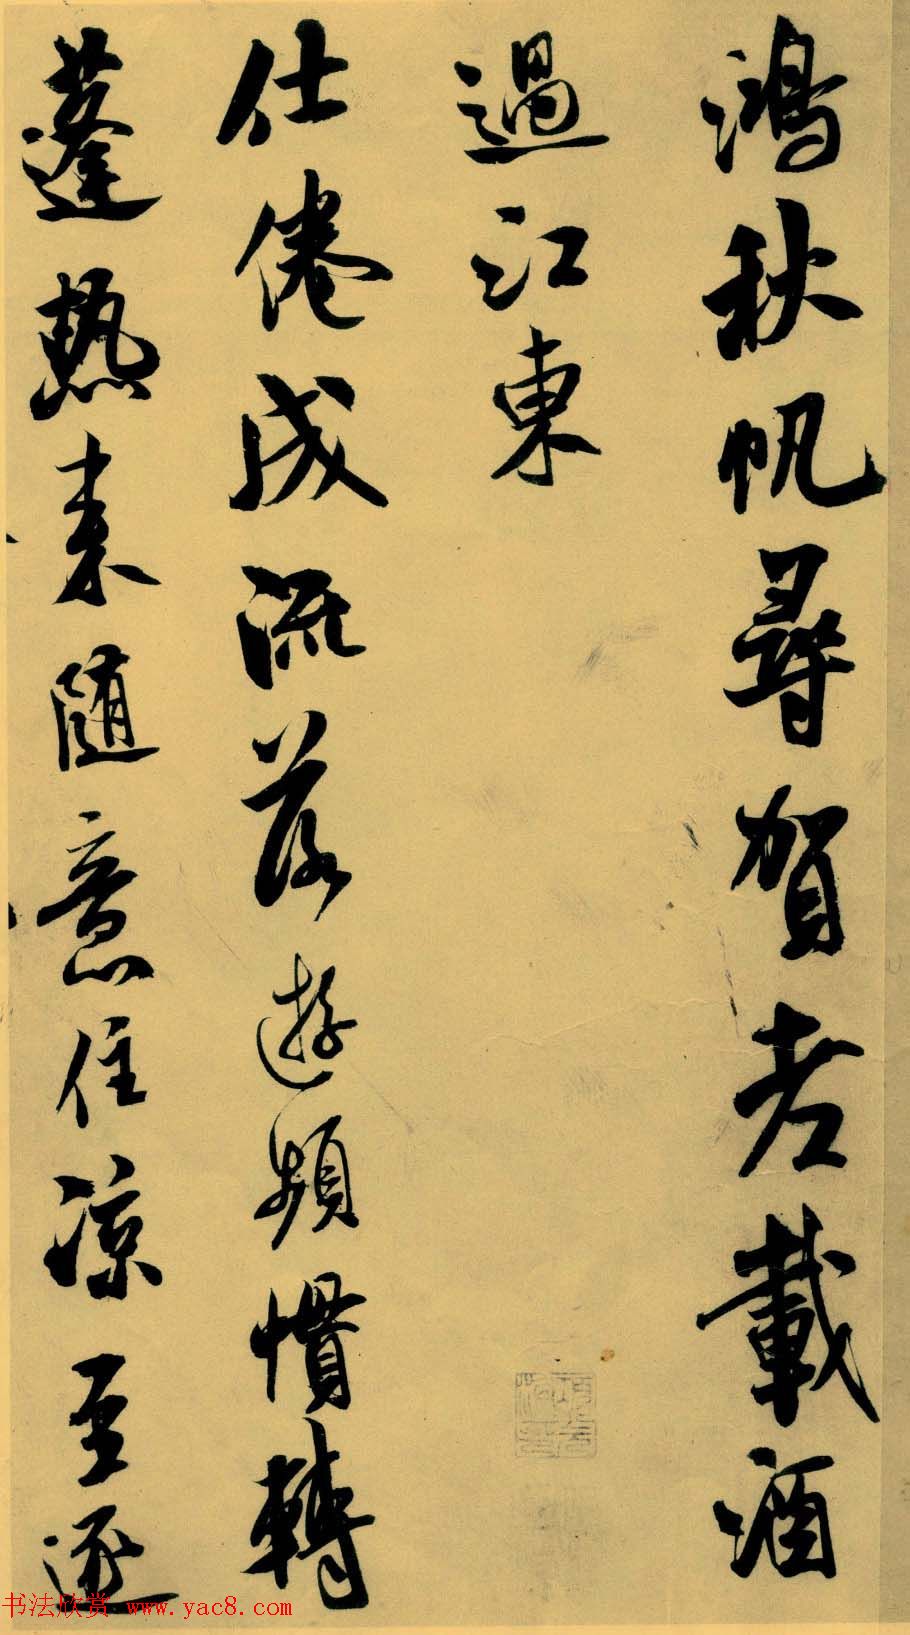 鴻秋帆尋賀老載酒
過江東
仕倦成流落遊頻慣轉
蓬熱来随意住涼至逐
书法欣赏 www.yac8.com